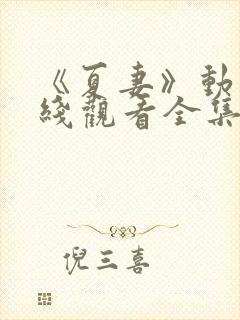 《夏妻》動
綫觀看全集
倪三喜